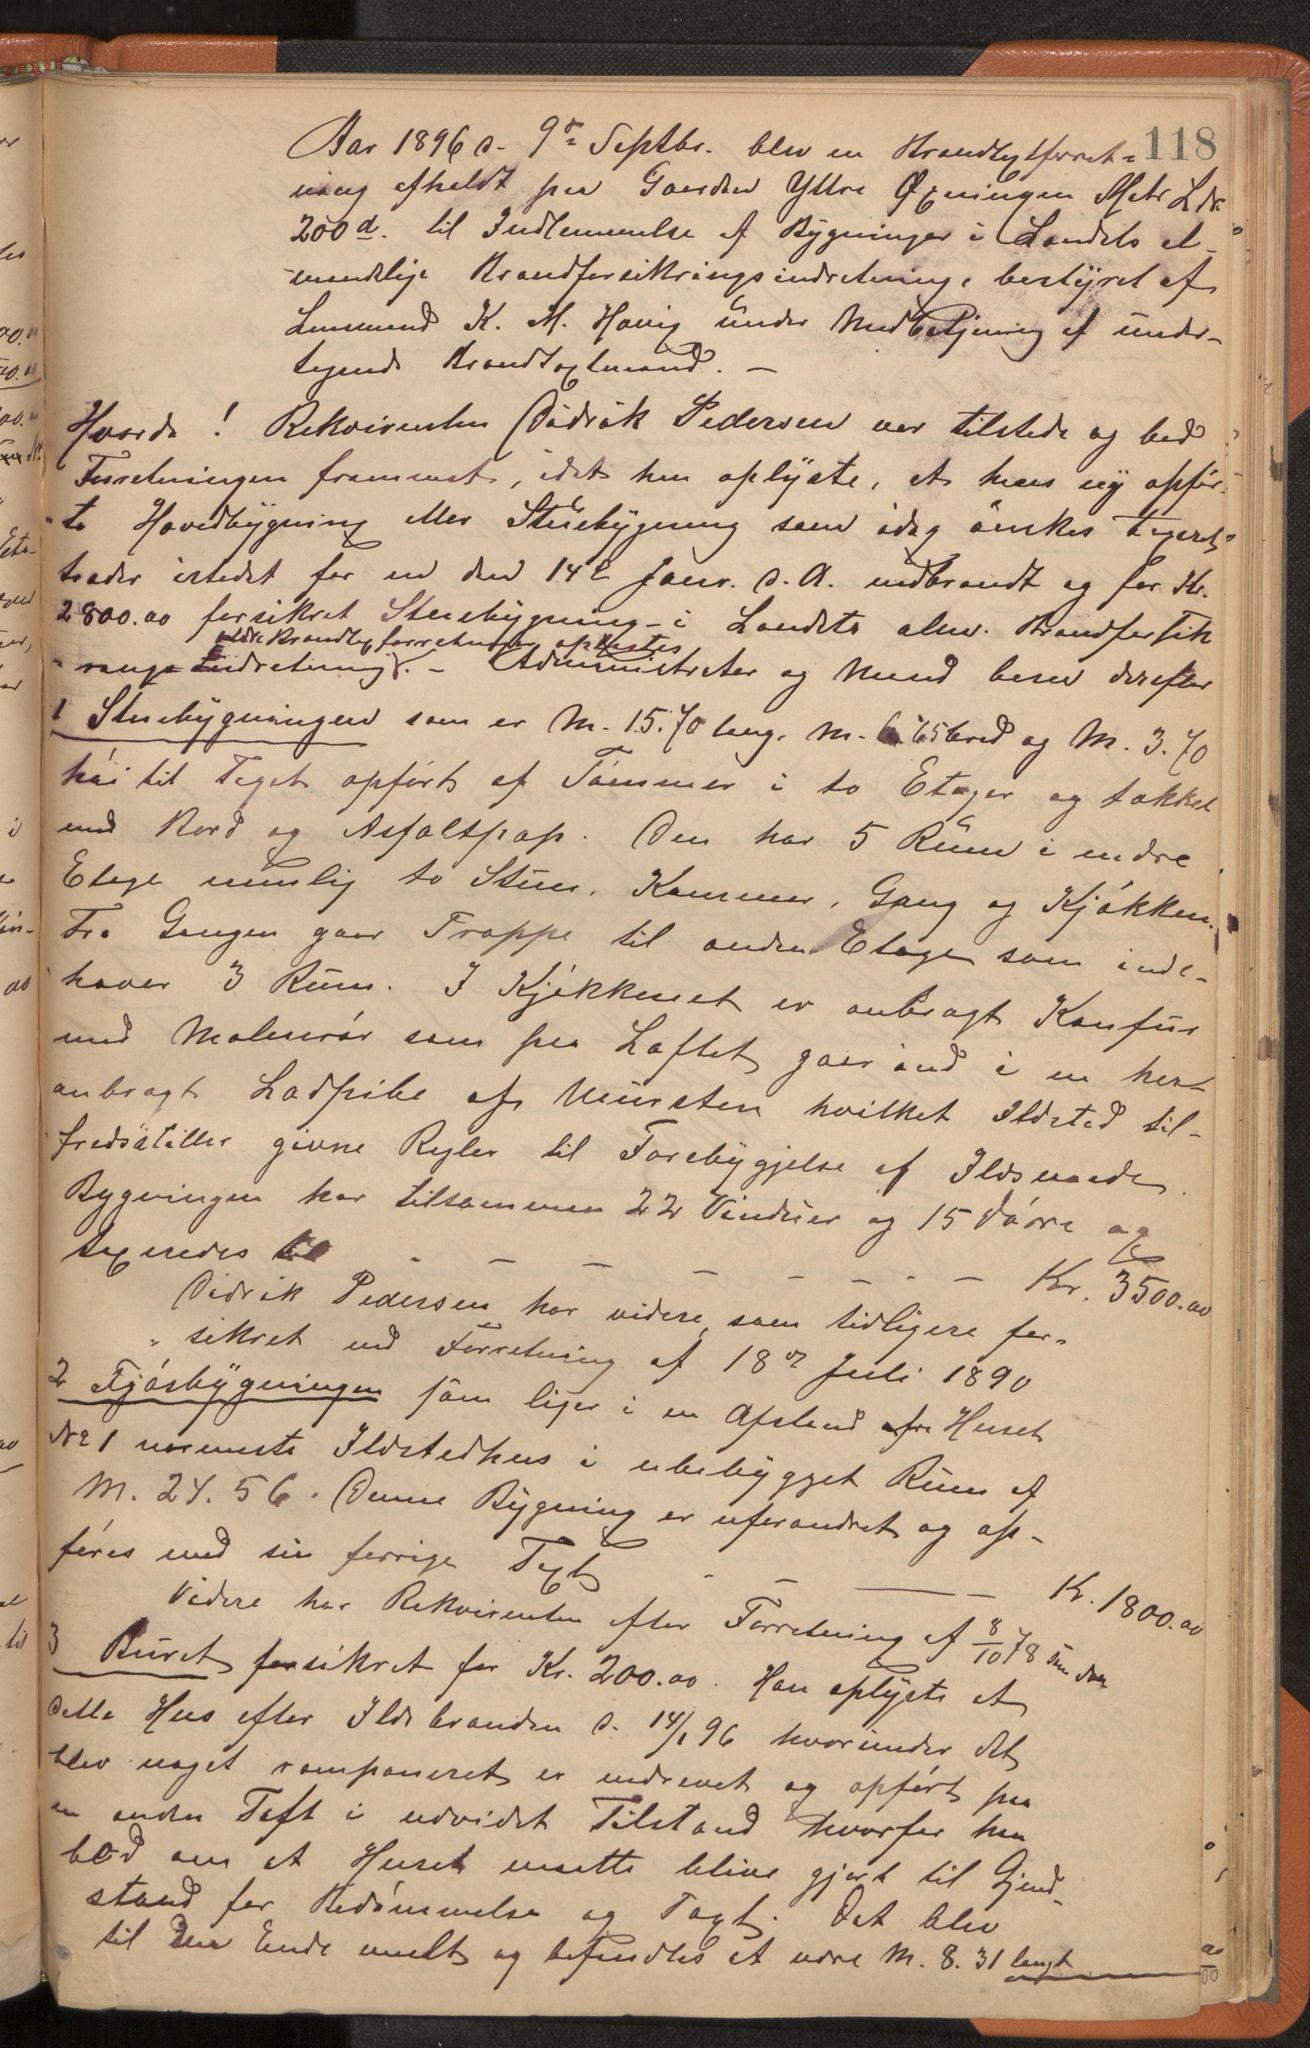 118
Aar 1896 d. 9de Septbr. blev en Brandtaxtforret-
ning afholdt paa Gaarden Yttre Øxningen Matr. Ldr
200d. til Indlemmelse af Bygninger i Landets al-
mindelige Brandforsikringsindretning, bestyret af
Lensmand K. M. Hovig under Medbetjening af under-
tegnede Brandtaxtmænd. —
Hvorda! Rekvirenten Didrik Pedersen var tilstede og bad
Forretningen fremmet, idet han oplyste, at hans ny opfør-
te Hovedbygning eller Stuebygning som idag ønskes taxeret
træder istedet for en den 14de Janr. d. A. nedbrændt og for Kr.
2800.00 forsikret Stuebygning i Landets alm. Brandforsik
ældre Brandtaxtforretninger oplæstes
rings Indretning. – Administrator og Mænd besaa derefter
1 Stuebygningen som er M. 15.70 lang, M. 6.65 bred og M. 3.70
høi til Taget opført af Tømmer i to Etager og tækket
med Bord og Asfaltpap. Den har 5 Rum i nedre
Etage nemlig to Stuer, Kammer, Gang og Kjøkken.
Fra Gangen gaar Trappe til anden Etage som inde-
haver 3 Rum. I Kjøkkenet er anbragt Komfur
med Malmrør som paa Loftet gaar ind i en her
anbragt Ladpibe af Mursten hvilket Ildsted til-
fredsstiller givne Regler til Forebyggelse af Ildsvaade.
Bygningen har tilsammen 22 Vinduer og 15 Dørre og
taxeredes til - - - - - - - - Kr. 3500.00
Didrik Pedersen har videre, som tidligere for-
sikret ved Forretning af 18de Juli 1890
2 Fjøsbygningen som liger i en Afstand fra Huset
No 1 nærmeste Ildstedhus i ubebygget Rum af
M. 24.56. Denne Bygning er uforandret og op-
føres med sin forrige Taxt - - — Kr. 1800.00
Videre har Rekvirenten efter Forretning af 8/10 78
3 Buret forsikret for Kr. 200.00. Han oplyste at
dette Hus efter Ildebranden d. 14/1 96 hvorunder det
blev noget ramponeret er nedrevet og opført paa
en anden Toft i udvidet Tilstand hvorfor han
bad om at Huset maatte blive gjort til Gjend-
stand for Bedømmelse og Taxt. Det blev
til den Ende maalt og befandtes at være M. 8.31 langt